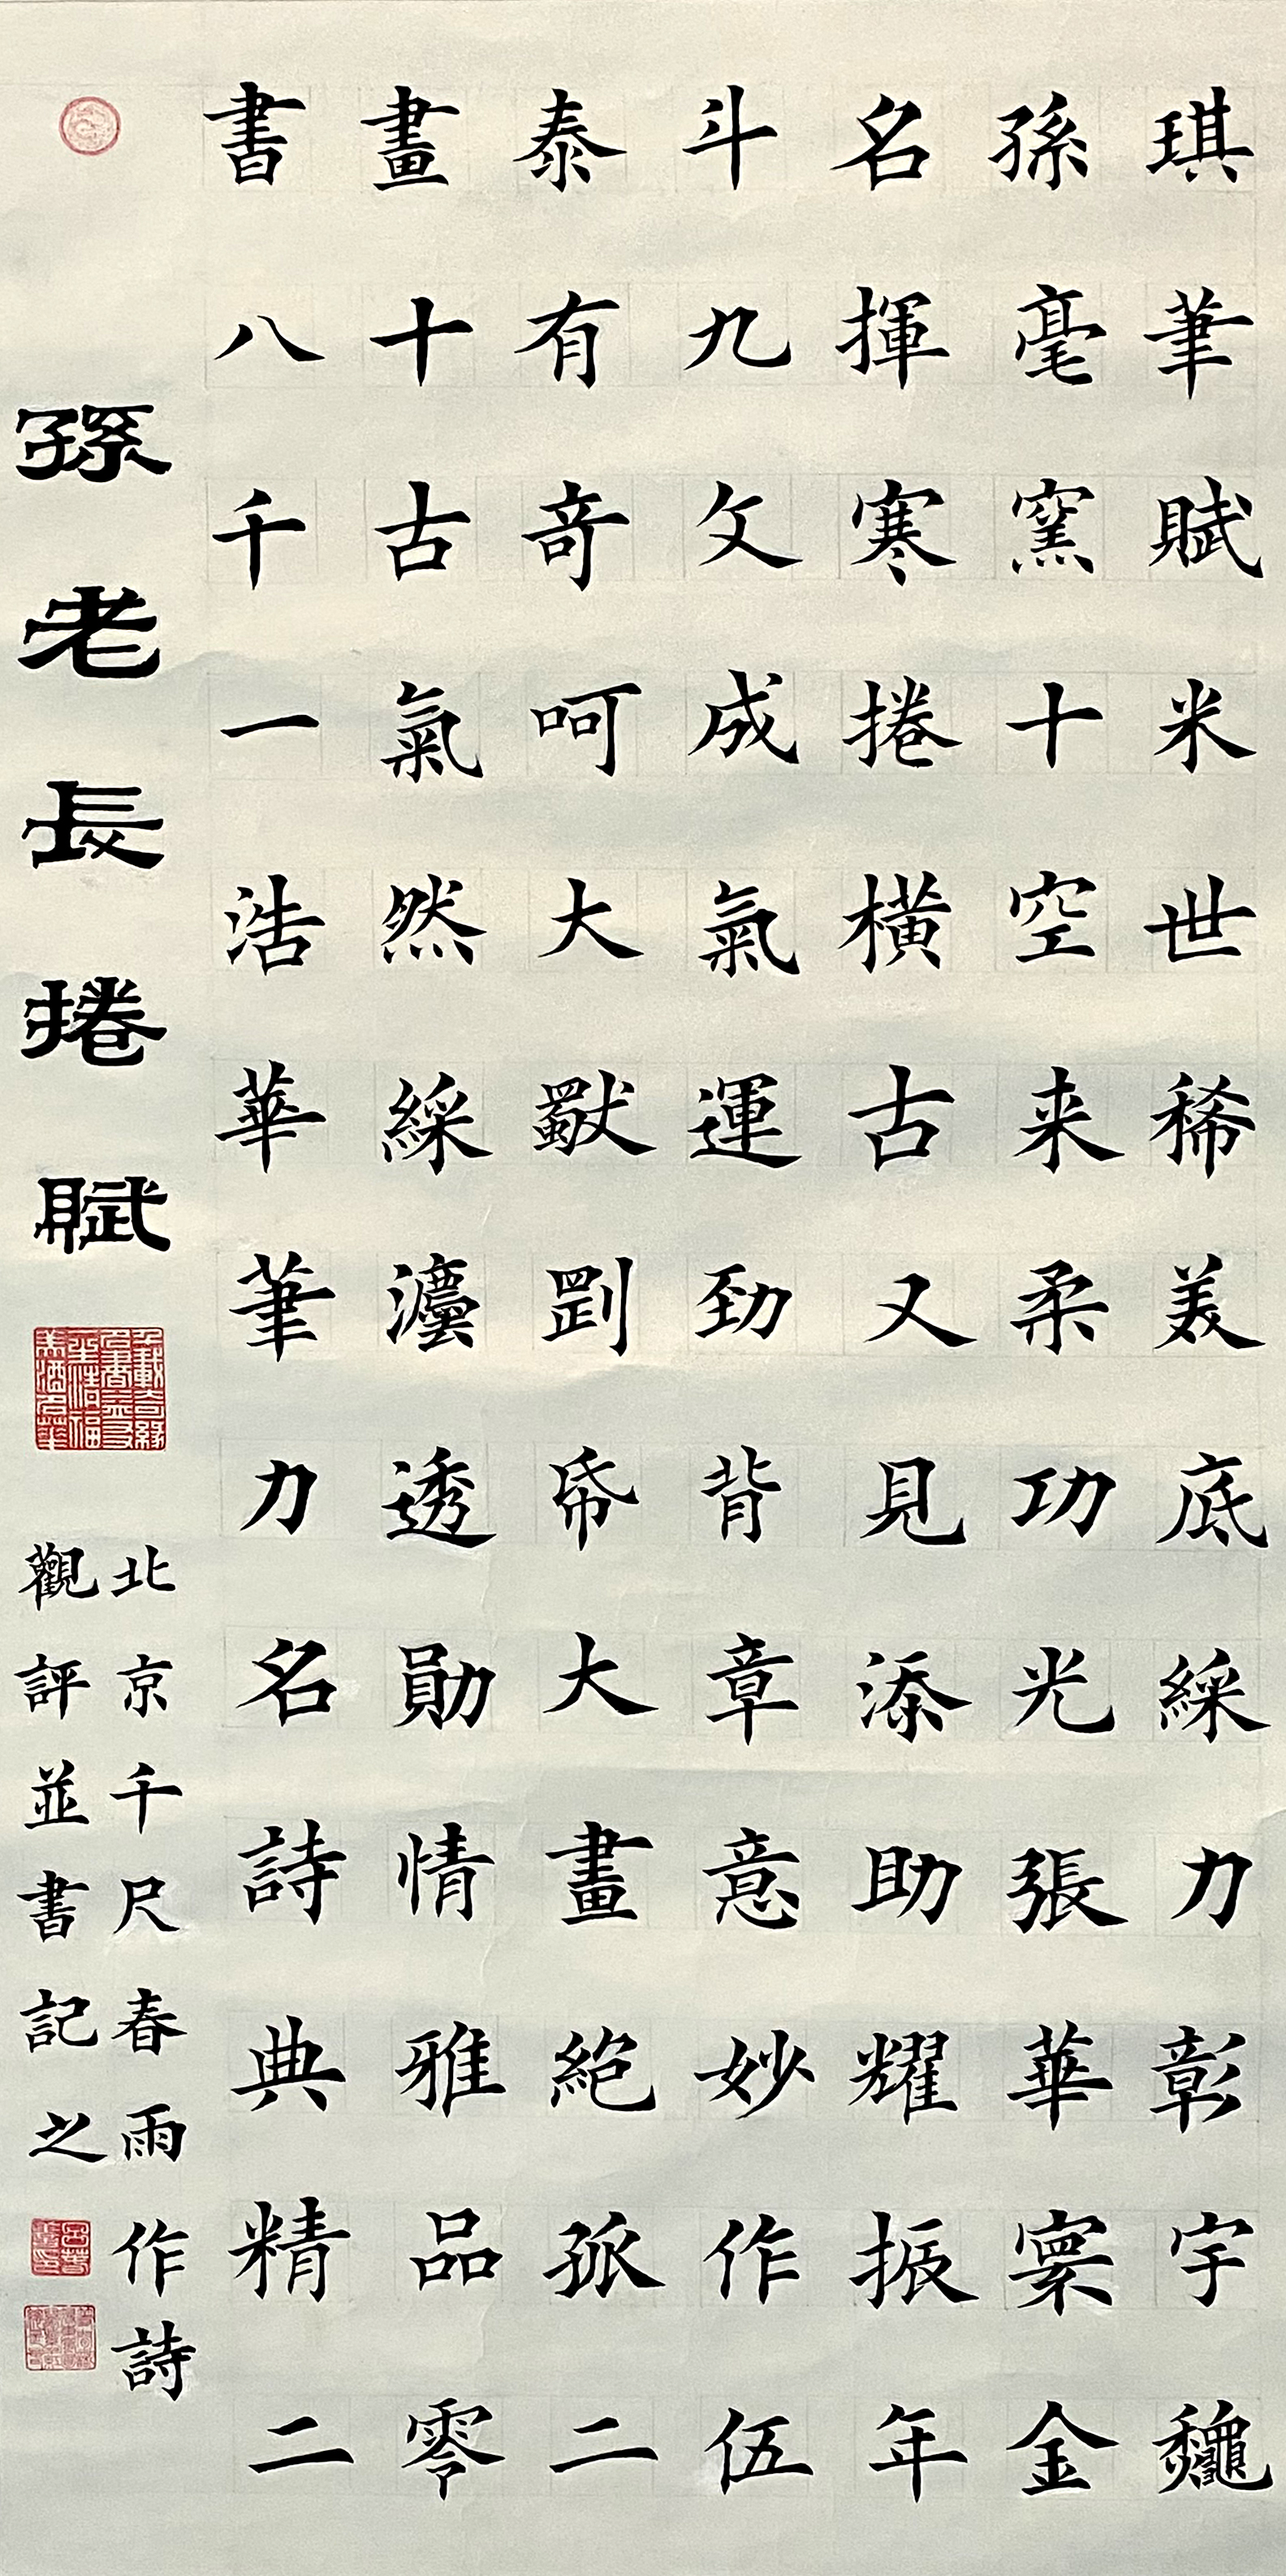 書畫泰斗名孫琪
八十有九揮毫筆
千古奇文寒窯賦
一氣呵成捲十米
浩然大氣橫空世
華綵獻運古来稀
筆灋剛劲又柔美
力透帋背見功底
名勛大章添光綵
詩情畫意助張力
典雅絕妙耀華彰
精品孤作振寰宇
二零二伍年金龝
孫老長捲賦
北京千尺春雨作詩
觀評並書記之